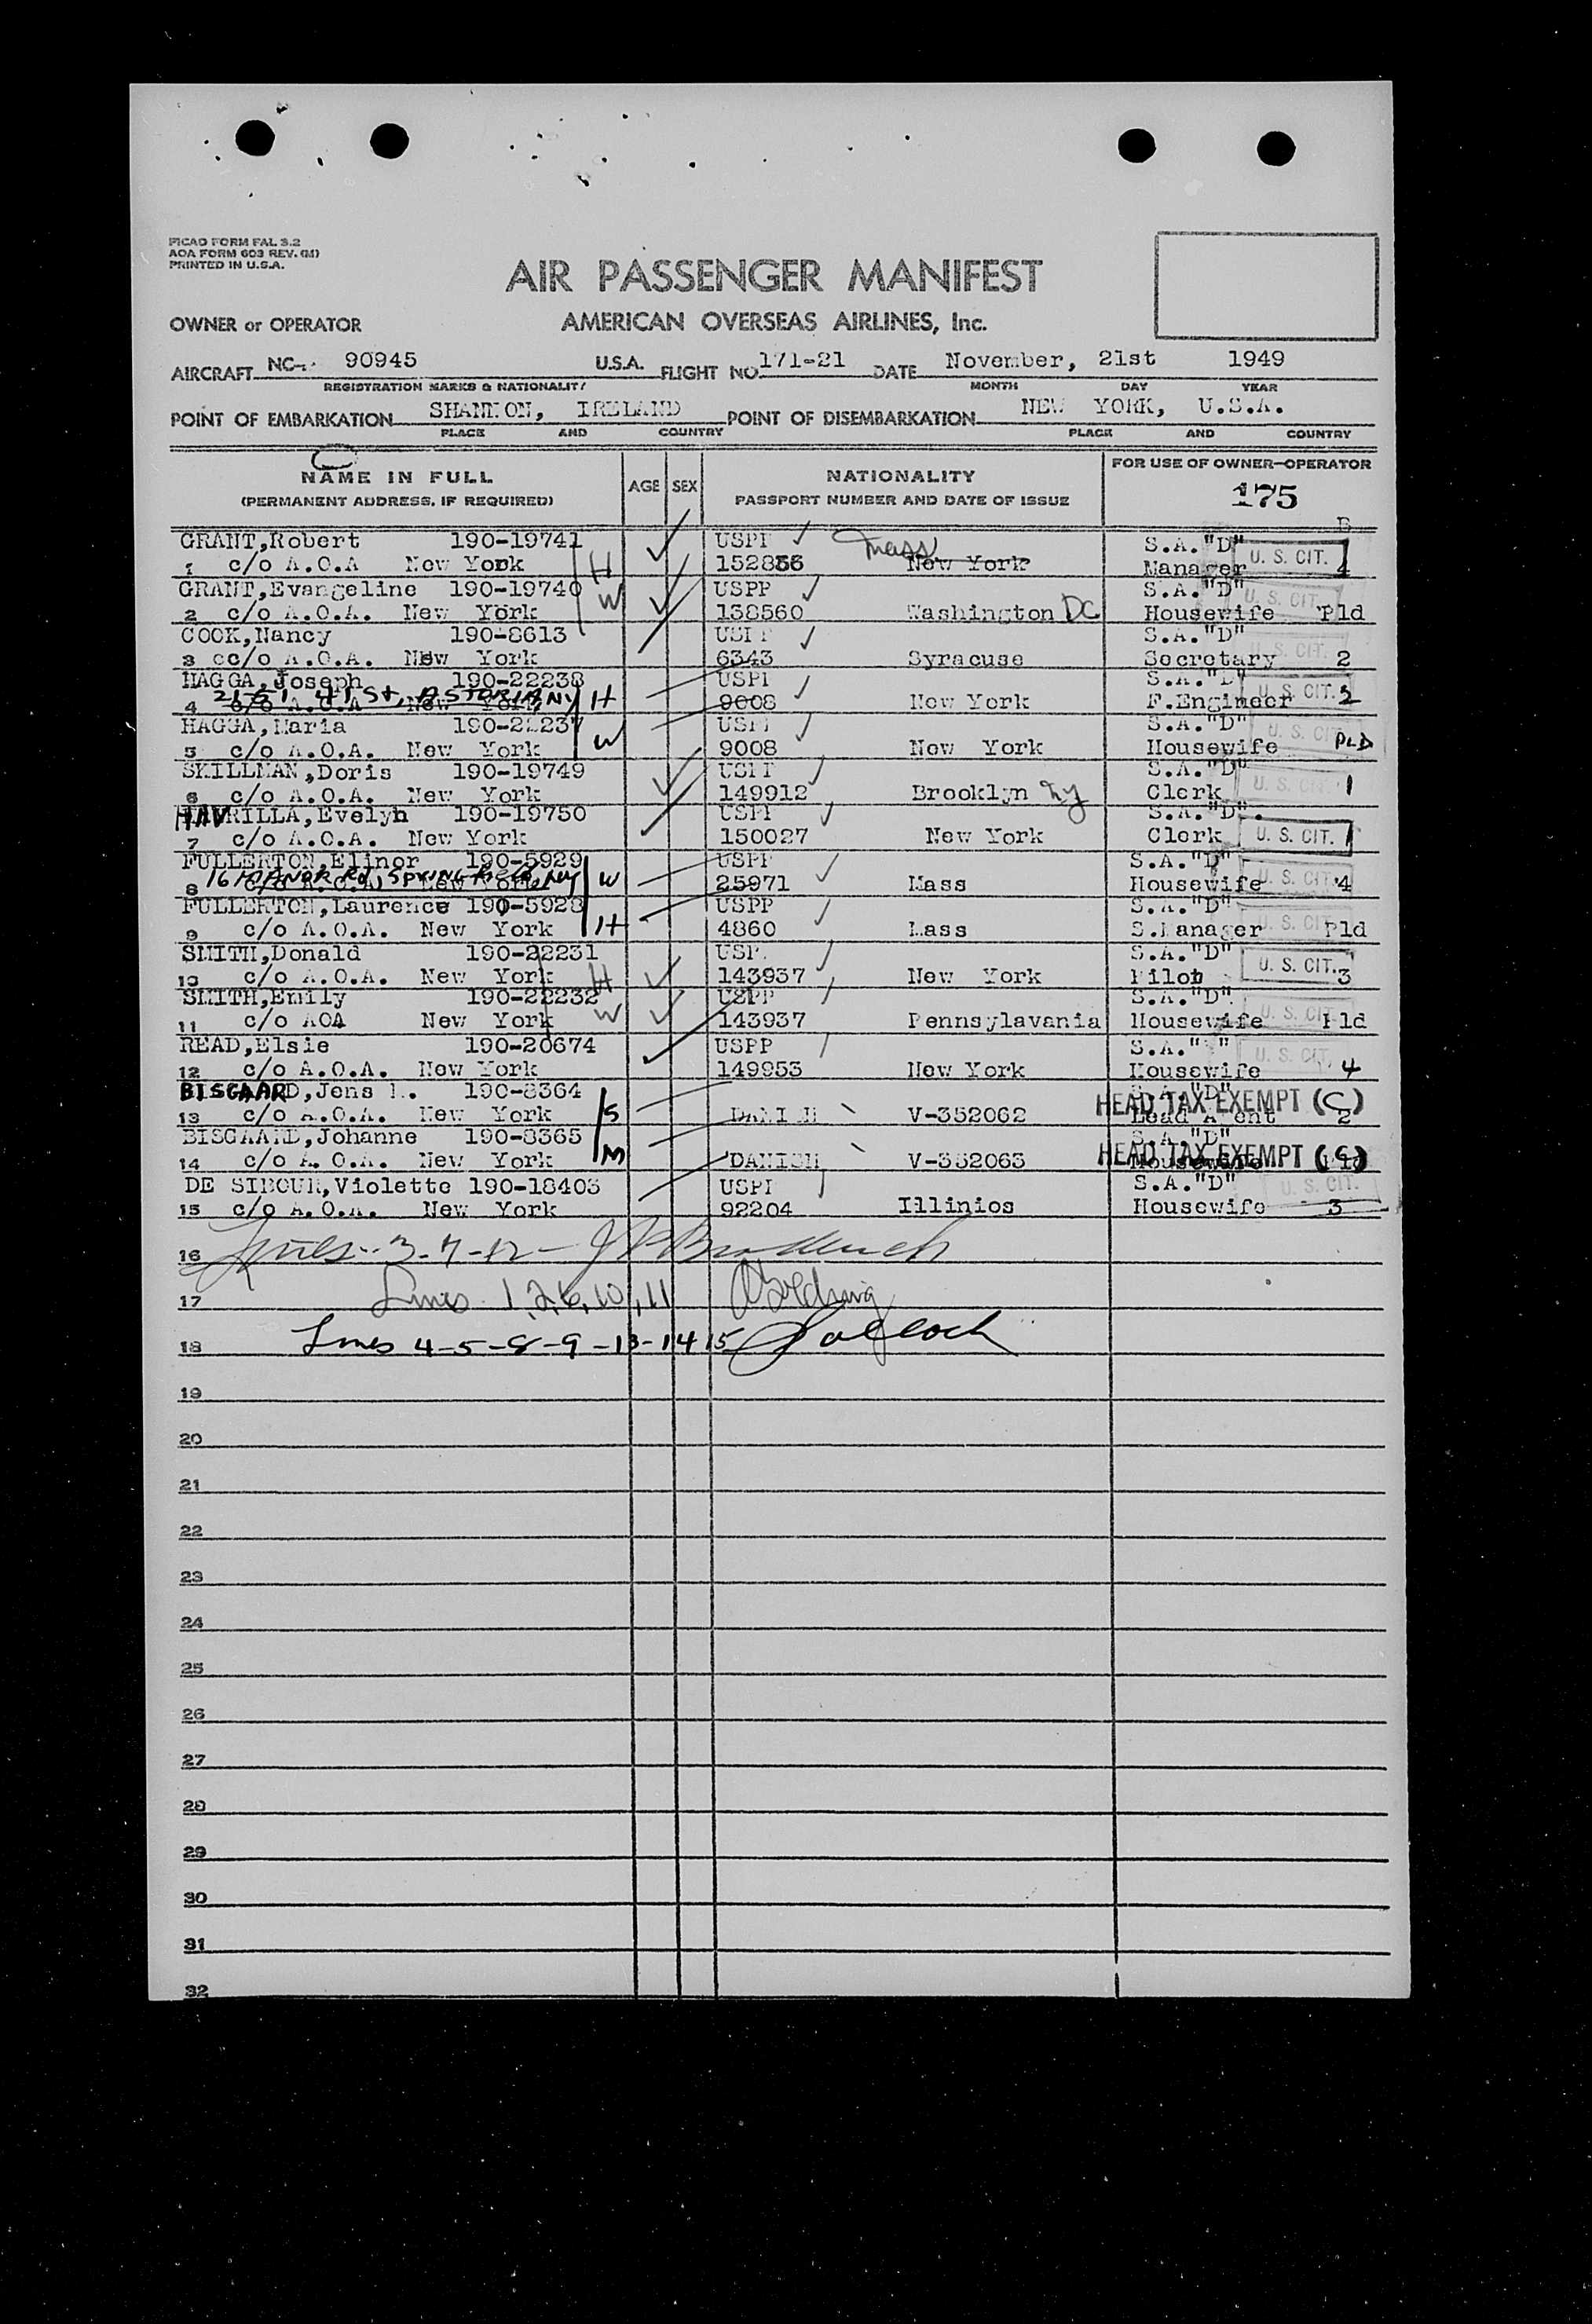 PICAO FORM FAL 3.2
AOA FORM 603 REV. (M)
PRINTED IN U.S.A.
AIR PASSENGER MANIFEST
OWNER or OPERATOR AMERICAN OVERSEAS AIRLINES, Inc.
AIRCRAFT NC- 90945 U.S.A. FLIGHT NO 171-21 DATE November, 21st 1949
REGISTRATION MARKS & NATIONALITY MONTH DAY YEAR
POINT OF EMBARKATION SHANNON, IRELAND POINT OF DISEMBARKATION NEW YORK, U.S.A.
PLACE AND COUNTRY PLACE AND COUNTRY
NAME IN FULL AGE SEX NATIONALITY FOR USE OF OWNER-OPERATOR
(PERMANENT ADDRESS, IF REQUIRED) PASSPORT NUMBER AND DATE OF ISSUE 175
GRANT,Robert 190-19741 USPP Mass S.A."D"
1 c/o A.O.A New York H 152856 New York Manager U. S. CIT. 4
GRANT,Evangeline 190-19740 W USPP S.A."D" U. S. CIT.
2 c/o A.O.A. New York 138560 Washington DC Housewife Pld
COOK,Nancy 190-8613 USPP S.A."D"
3 c/o A.O.A. New York 6343 Syracuse Secretary U. S. CIT. 2
HAGGA,Joseph 190-22238 USPP S.A."D"
21-51 41 St, ASTORIA NY
4 c/o A.O.A New York H 9008 New York F.Engineer U. S. CIT. 2
HAGGA,Maria 190-22237 USPP S.A."D"
5 c/o A.O.A. New York W 9008 New York Housewife U. S. CIT. PLD
SKILLMAN,Doris 190-19749 USPP S.A."D"
6 c/o A.O.A. New York 149912 Brooklyn NY Clerk U. S. CIT. 1
HAVRILLA,Evelyn 190-19750 USPP S.A."D"
7 c/o A.O.A. New York 150027 New York Clerk U. S. CIT. 1
FULLERTON,Elinor 190-5929 USPP S.A."D"
16 MANOR Rd, SPRINGFIELD NY
8 c/o A.O.A New York W 25971 Mass Housewife U. S. CIT. 4
FULLERTON,Laurence 190-5928 USPP S.A."D"
9 c/o A.O.A. New York H 4860 Mass S.Manager U. S. CIT. Pld
SMITH,Donald 190-22231 USPP S.A."D"
10 c/o A.O.A. New York H 143937 New York Pilot U. S. CIT. 3
SMITH,Emily 190-22232 USPP S.A."D"
11 c/o AOA New York W 143937 Pennsylavania Housewife U. S. CIT. Pld
READ,Elsie 190-20674 USPP S.A." "
12 c/o A.O.A. New York 149953 New York Housewife U. S. CIT. 4
BISGAARD,Jens 190-8364 S.A."D"
13 c/o A.O.A. New York S DANISH V-352062 HEAD TAX EXEMPT (C) Lead Agent 2
BISGAARD,Johanne 190-8365 S.A."D"
14 c/o A.O.A. New York M DANISH V-352063 HEAD TAX EXEMPT (C) Housewife Pld
DE SIBOUR,Violette 190-18403 USPP S.A."D"
15 c/o A.O.A. New York 92204 Illinios Housewife U. S. CIT. 3
16 Lines 3-7-12-
17 Lines 1,2,6,10,11
18 Lines 4-5-8-9-13-14 15
19
20
21
22
23
24
25
26
27
28
29
30
31
32